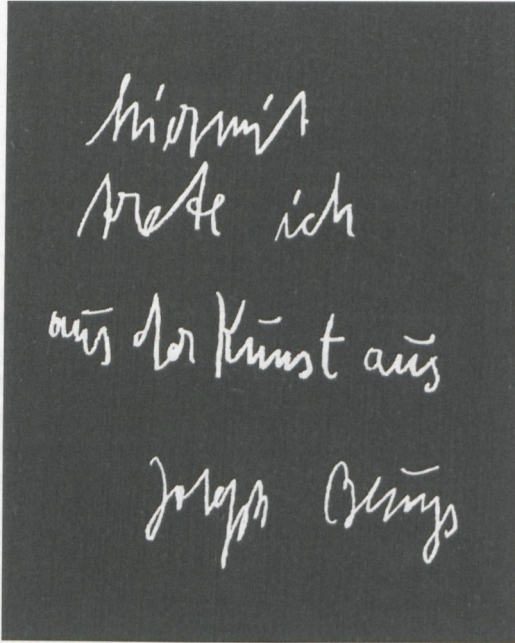 hiermit
trete ich
aus der Kunst aus
Joseph Beuys